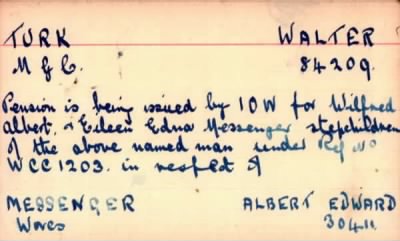 TURK WALTER
M G C. 84209.
Pension is being issued by IOW for Wilfred
Albert, & Eileen Edna Messenger stepchildren
of the above named man under Ref No
WCC1203. in respect of
MESSENGER ALBERT EDWARD
Worcs 30411.